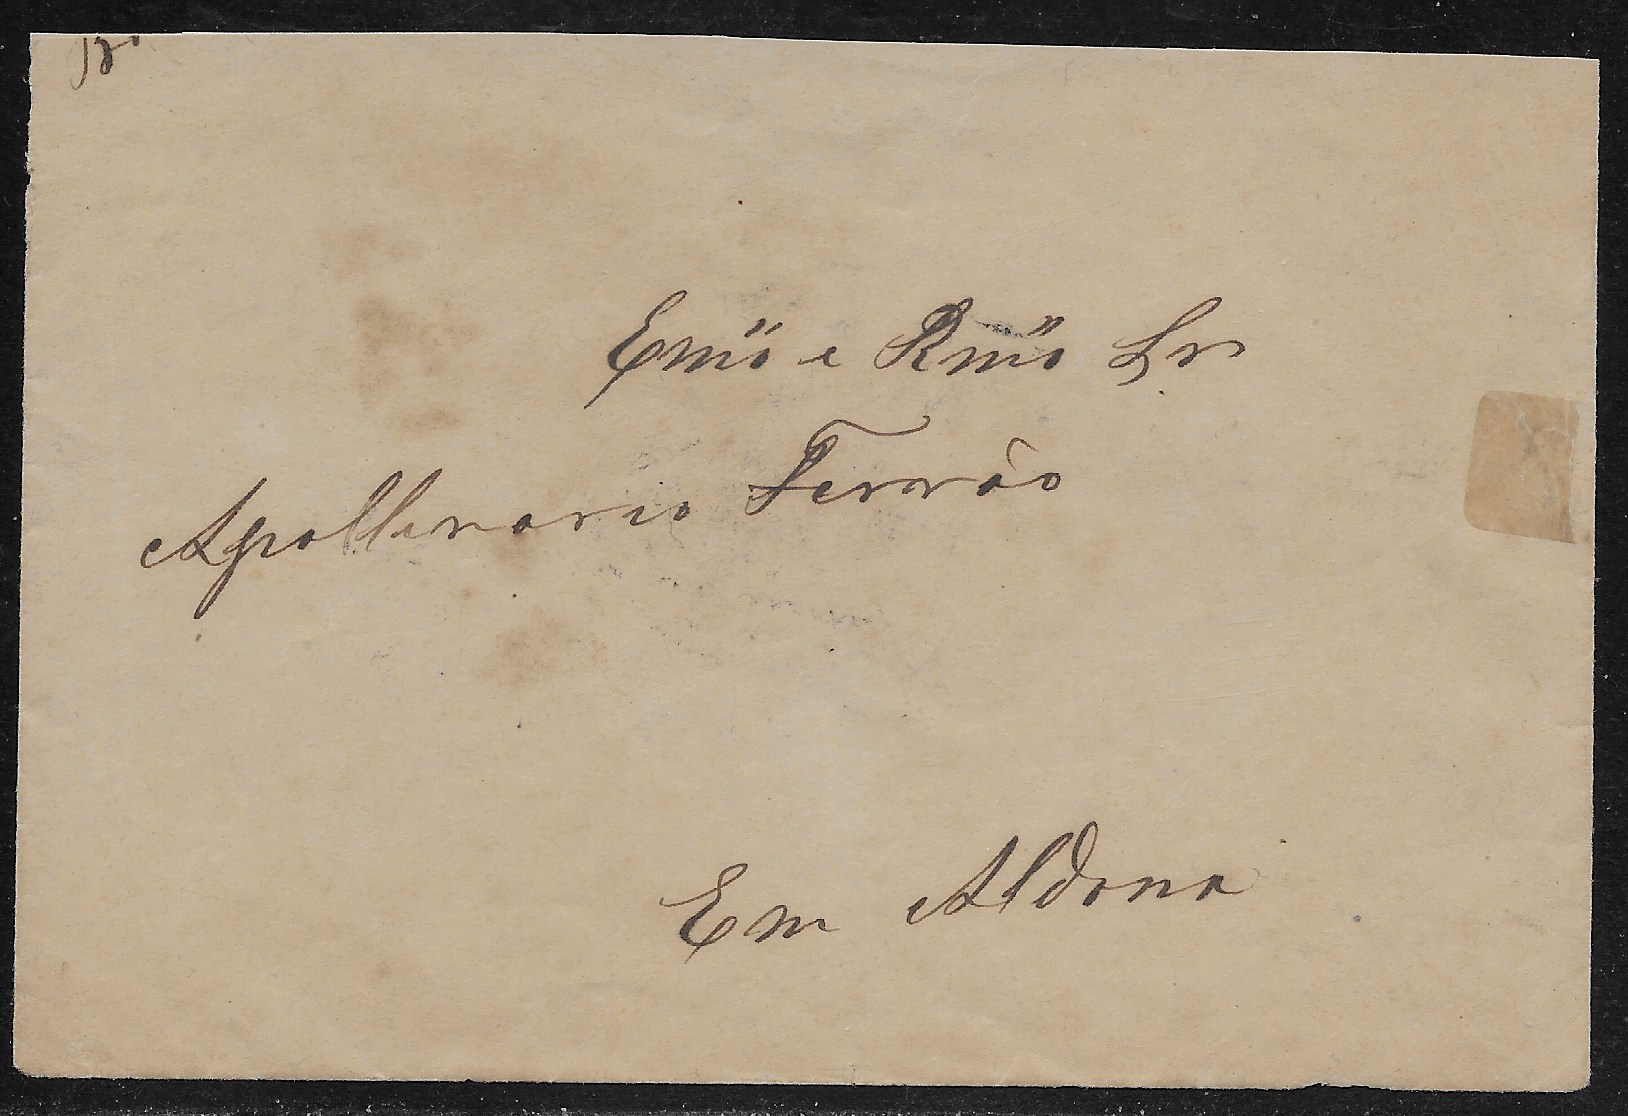 Emo e Rmo Sr
Apollinario Ferrão
Em Aldona